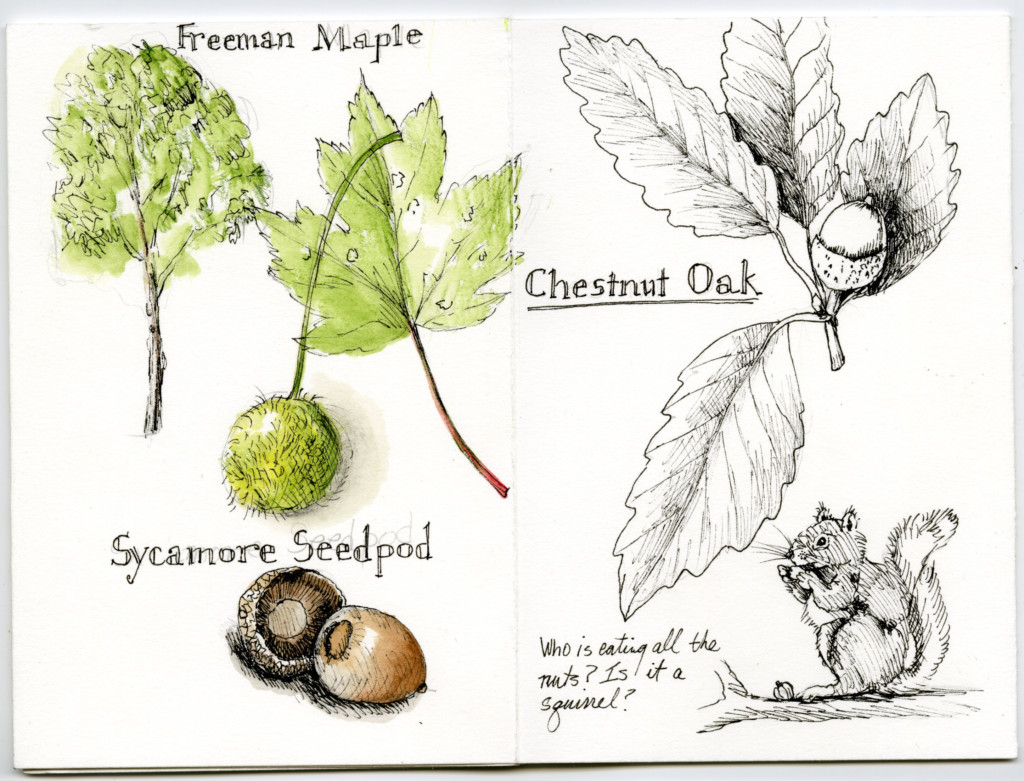 Freeman Maple
Sycamore Seedpod
Chestnut Oak
Who is eating all the
nuts? Is it a
squirrel?